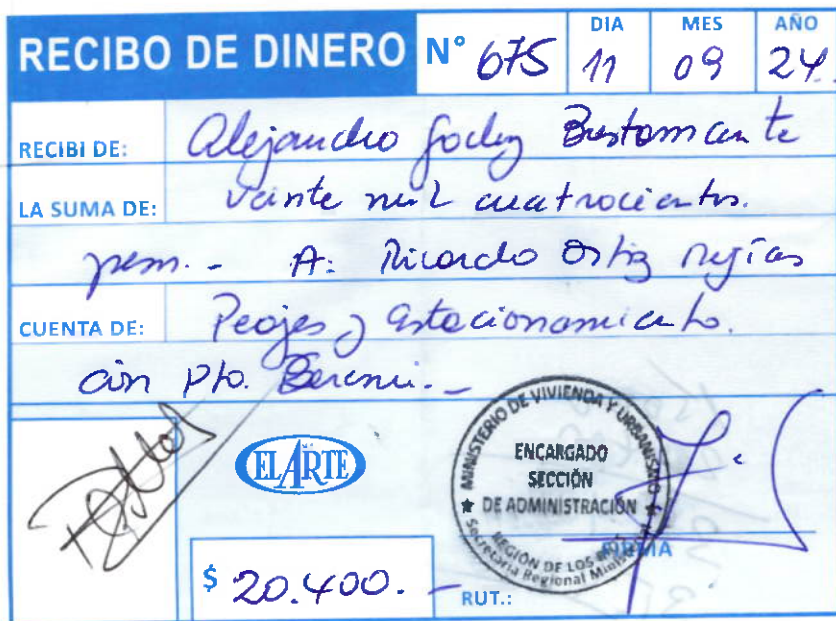 RECIBO DE DINERO N° 675 DIA 11 MES 09 AÑO 24.
RECIBI DE: Alejandro Godoy Bustamante
LA SUMA DE: Veinte mil cuatrocientos.
pesos.- A: Ricardo Ortiz Mejías
CUENTA DE: Peajes y Estacionamiento.
Pto.
EL ARTE
MINISTERIO DE VIVIENDA Y URBANISMO
ENCARGADO
SECCIÓN
DE ADMINISTRACIÓN
REGIÓN DE LOS
Secretaría Regional
FIRMA
$ 20.400.-
RUT.: